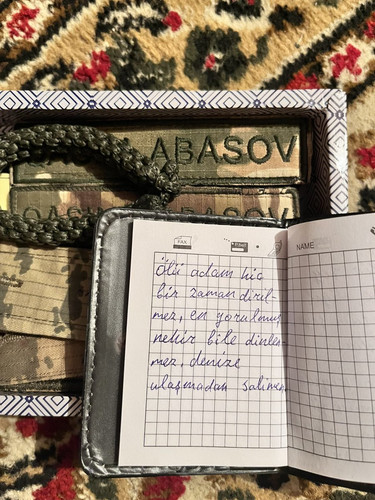 ABASOV
FAX
NAME
Ölü adam hiç
bir zaman diril-
mez, en yorulmuş
nehir bile dinlen-
mez, denize
ulaşmadan salimen